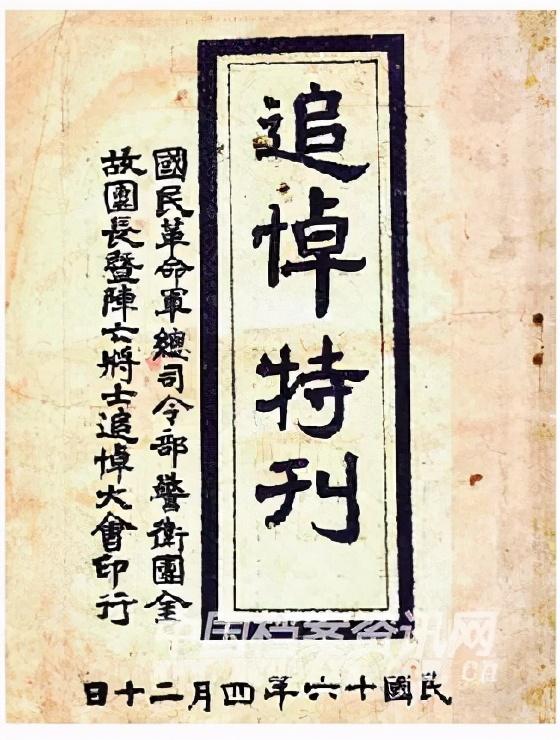 追悼特刊
國民革命軍總司令部警衛團金
故團長暨陣亡將士追悼大會印行
民國十六年四月二十日
中国档案资讯网